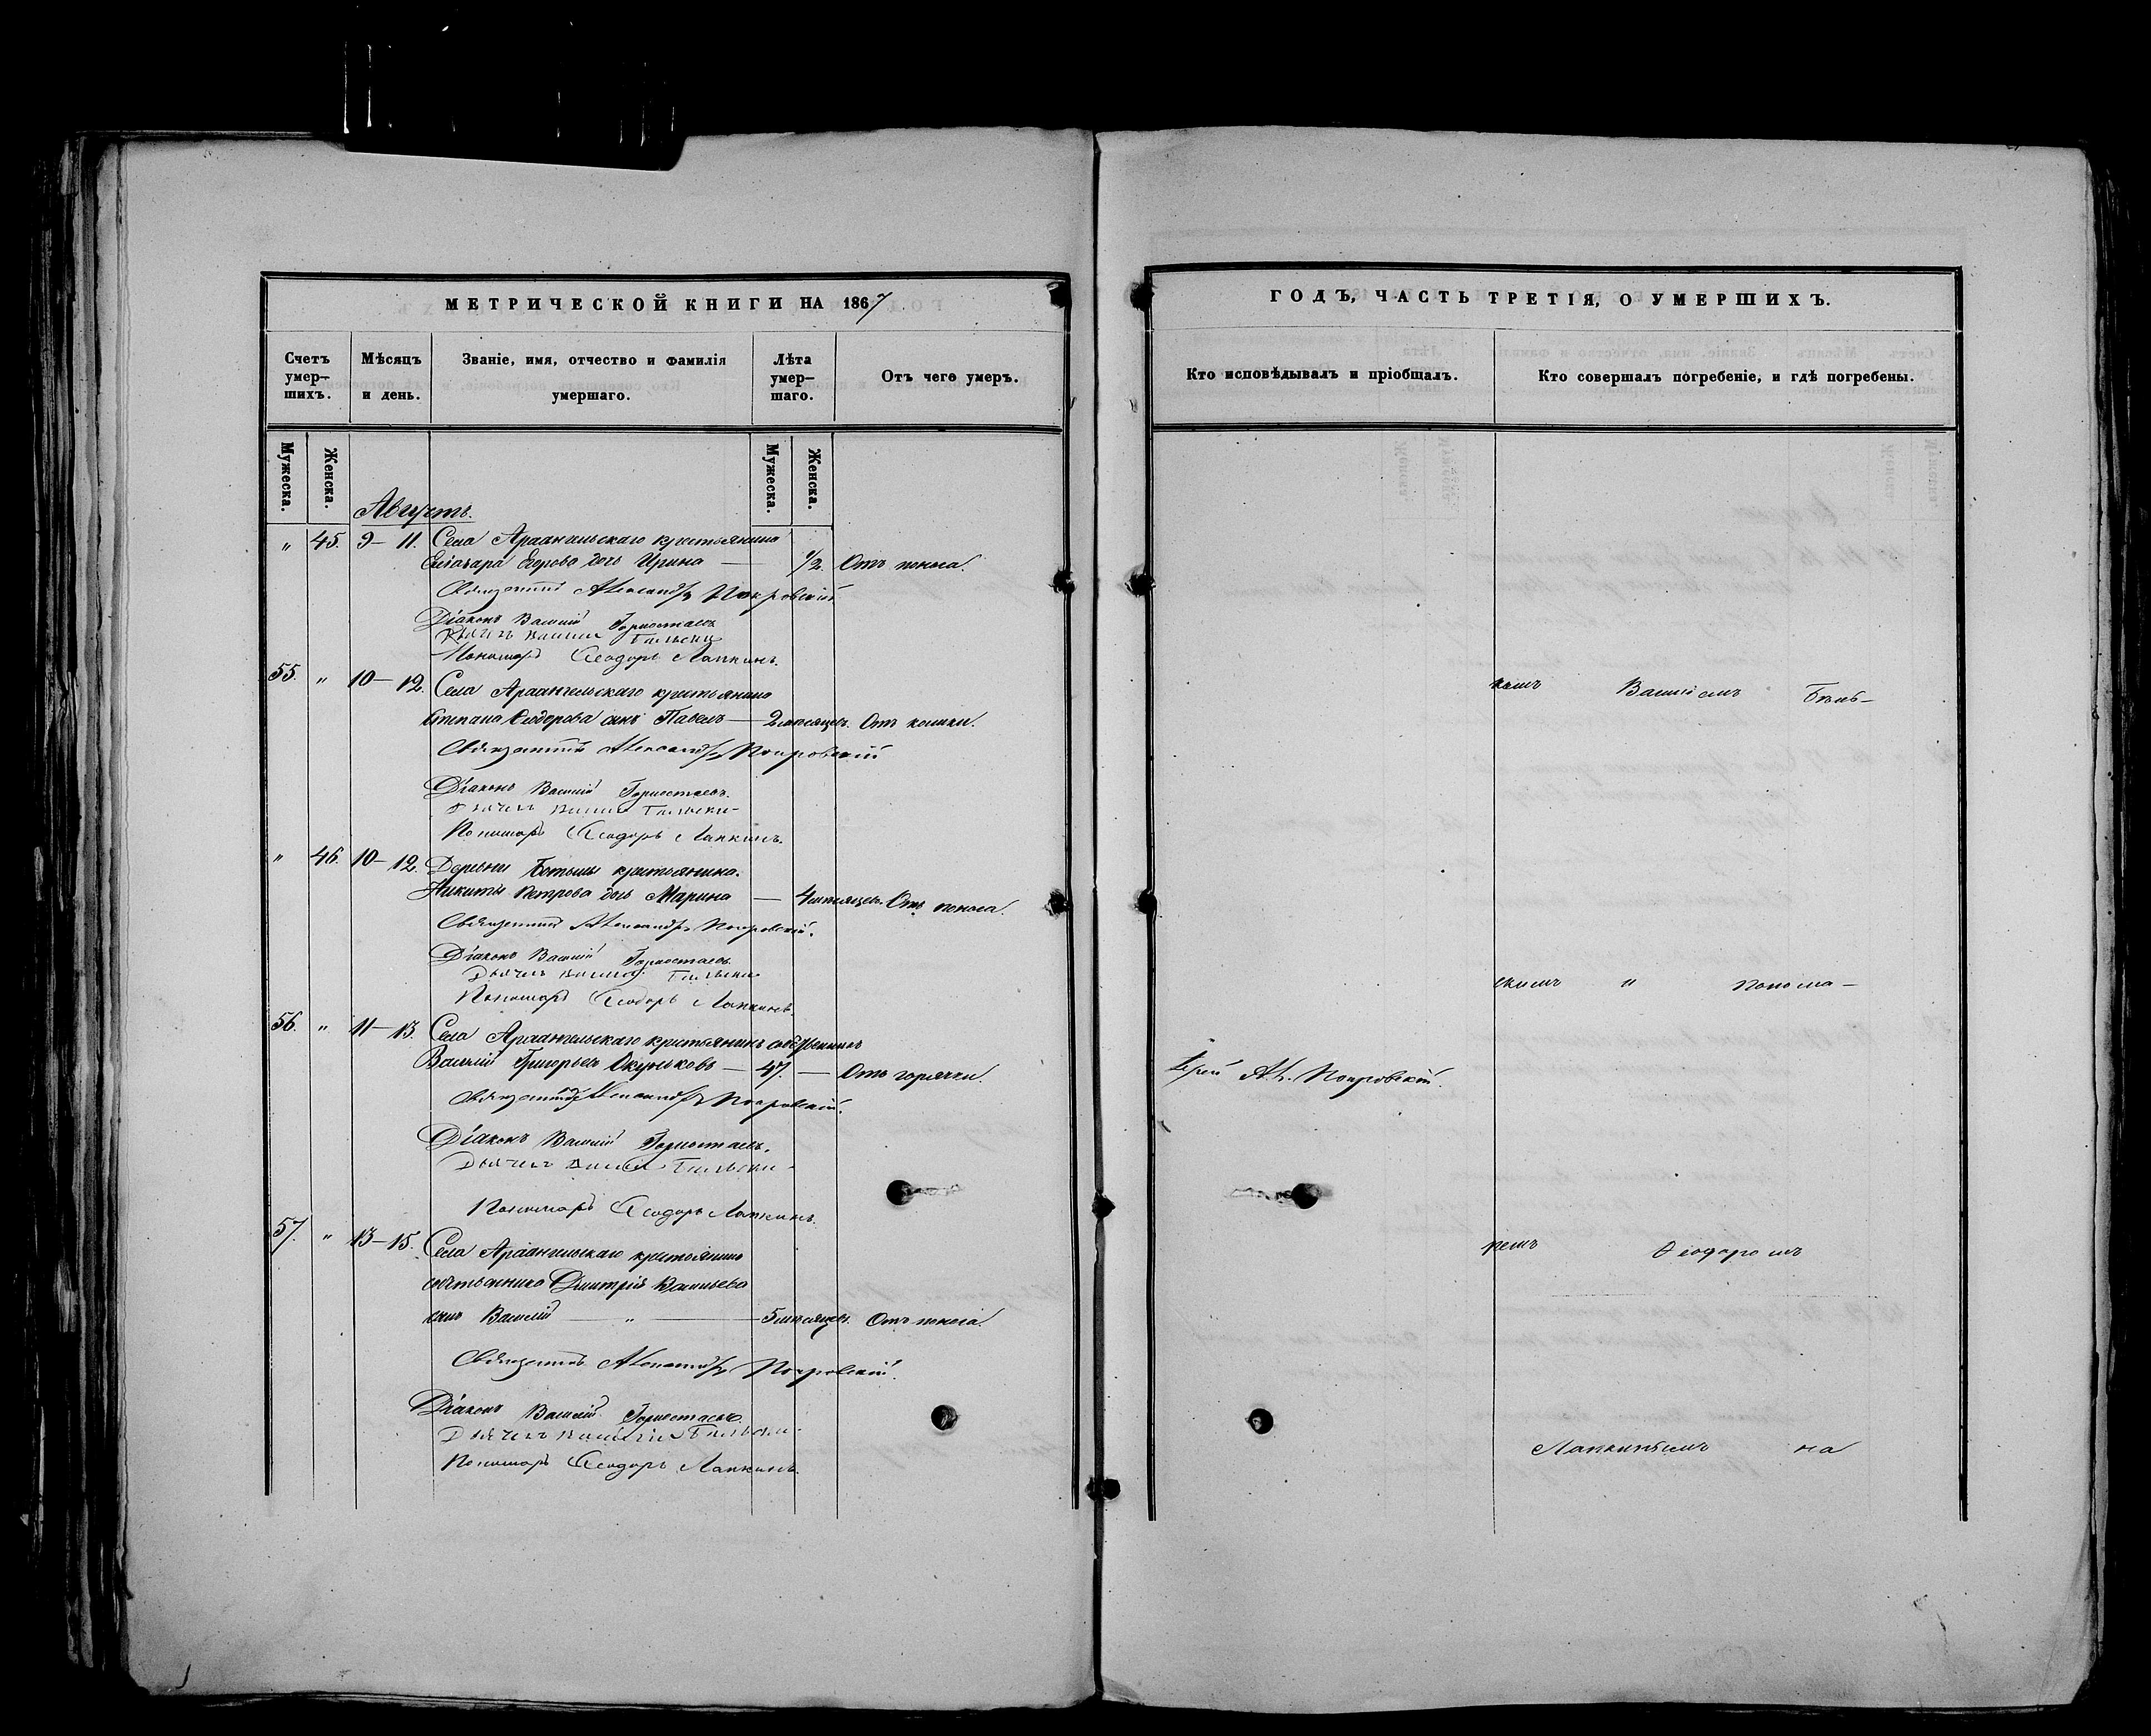 МЕТРИЧЕСКОЙ КНИГИ НА 1867
Счетъ умер- шихъ.
Мѣсяцъ и день.
Званіе, имя, отчество и фамилія умершаго.
Лѣта умер- шаго.
Отъ чего умеръ.
Мужеска.
Женска.
Мужеска.
Женска.
Августъ.
" 45. 9-11. Села Архангельскаго крестьянина
Егорова дочь Ирина — 1/2. Отъ поноса.
Священникъ Александръ Покровскій
Діаконъ Василій Горностаевъ
Дьячекъ Василій Бѣльскій
Пономарь Ѳеодоръ Лапкинъ.
55. " 10-12. Села Архангельскаго крестьянина
Степана Ѳеодорова сынъ Павелъ — 2 мѣсяцев. Отъ колики.
Священникъ Александръ Покровскій
Діаконъ Василій Горностаевъ.
Дьячекъ Василій Бѣльскій
Пономарь Ѳеодоръ Лапкинъ.
" 46. 10-12. Деревни крестьянина
Никиты Петрова дочь Марина — 4 мѣсяцев. Отъ поноса.
Священникъ Александръ Покровскій.
Діаконъ Василій Горностаевъ.
Дьячекъ Василій Бѣльскій
Пономарь Ѳеодоръ Лапкинъ
56. " 11-13. Села Архангельскаго крестьянинъ собственникъ
Василій Григорьевъ Окуньковъ — 47. — Отъ горячки.
Священникъ Александръ Покровскій.
Діаконъ Василій Горностаевъ.
Дьячекъ Василій Бѣльскій
Пономарь Ѳеодоръ Лапкинъ.
57. " 13-15. Села Архангельскаго крестьянина
собственника Дмитрія Васильева
сынъ Василій — " — 5 мѣсяцев. Отъ поноса.
Священникъ Александръ Покровскій.
Діаконъ Василій Горностаевъ.
Дьячекъ Василій Бѣльскій
Пономарь Ѳеодоръ Лапкинъ.
ГОДЪ, ЧАСТЬ ТРЕТІЯ, О УМЕРШИХЪ.
Кто исповѣдывалъ и пріобщалъ.
Кто совершалъ погребеніе, и гдѣ погребены.
комъ Василіемъ Бѣль-
скимъ " Понома-
Іерей Ал. Покровскій.
ремъ Ѳеодоромъ
Лапкинымъ на